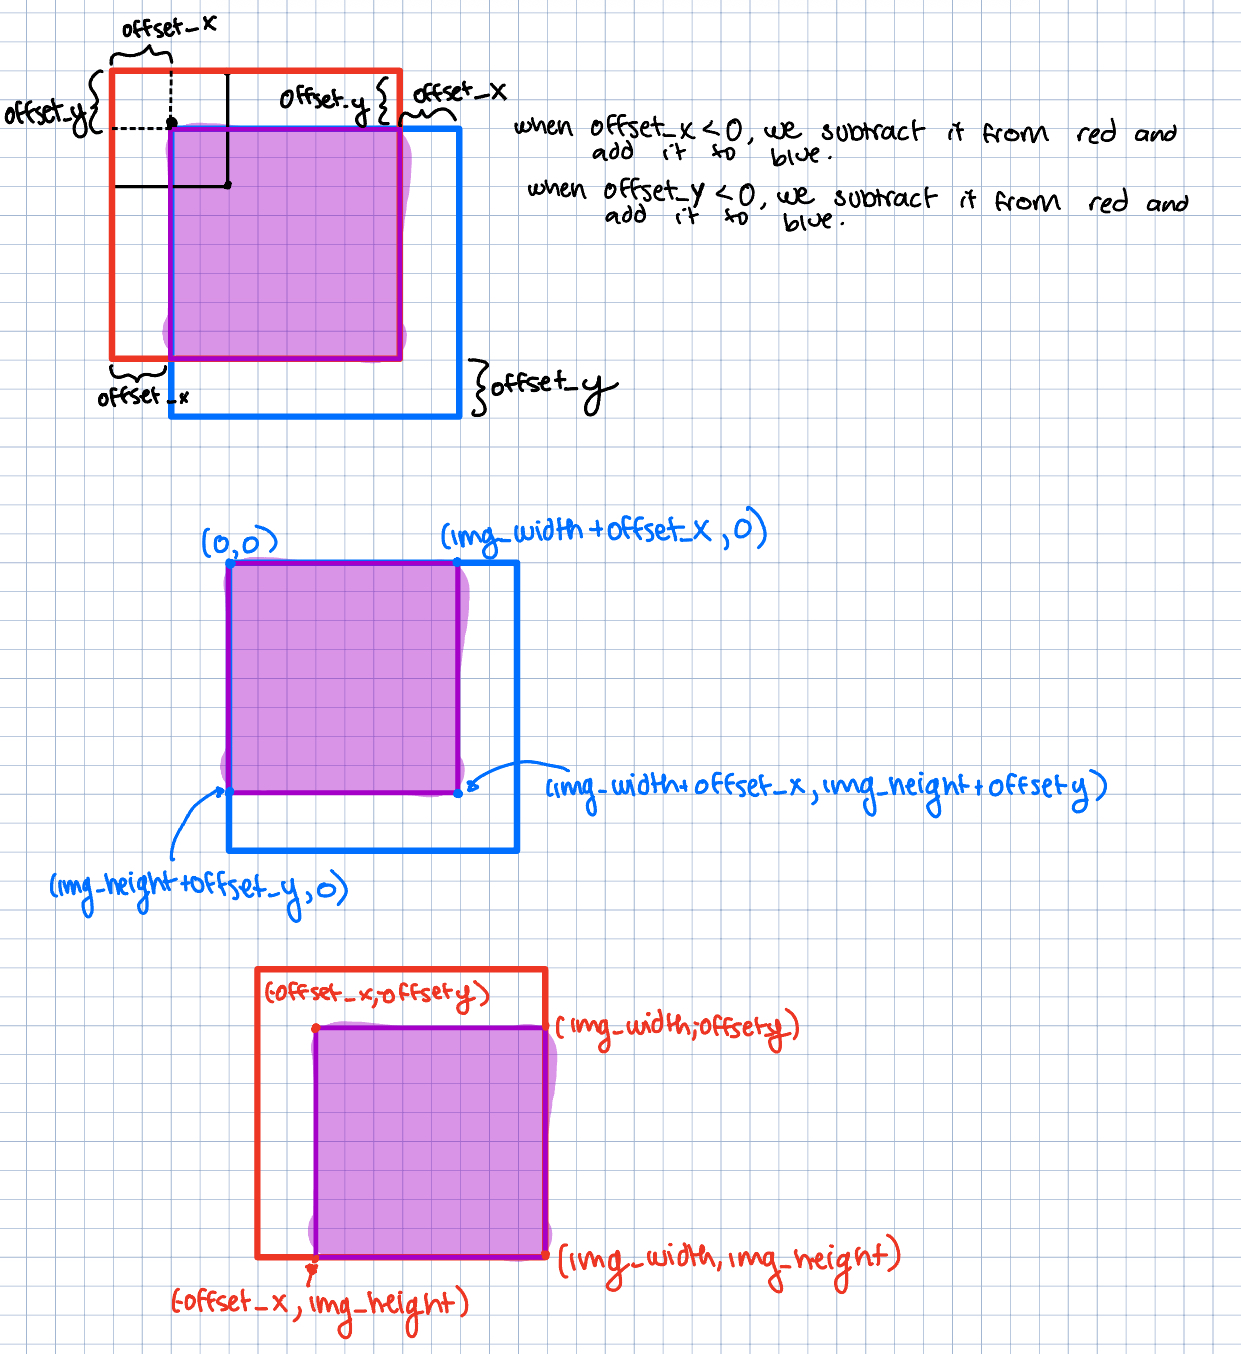 offset_x
offset_y
offset.y
offset_x
when offset_x <0, we subtract it from red and
add it to blue.
when offset_y <0, we subtract it from red and
add it to blue.
offset_x
offset_y
(0,0)
(img_width+offset_x,0)
(img_width+offset_x,img_height+offsety)
(img_height+offset_y,0)
(-offset_x,-offsety)
(img_width,-offsety)
(img_width,img_height)
(-offset_x,img_height)